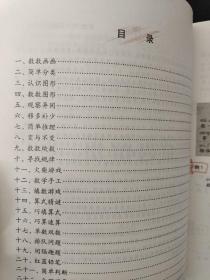 目 录
一、数数画画
二、简单分类
三、认识图形
四、数数图形
五、观察异同
六、移多补少
七、简单推理
八、变与不变
九、数数块数
十、寻找规律
十一、火柴游戏
十二、数学手工
十三、填数游戏
十四、算式猜谜
十五、巧填算式
十六、巧算速算
十七、单数双数
十八、排队问题
十九、间隔趣题
二十、红蓝铅笔
二十一、简单判断